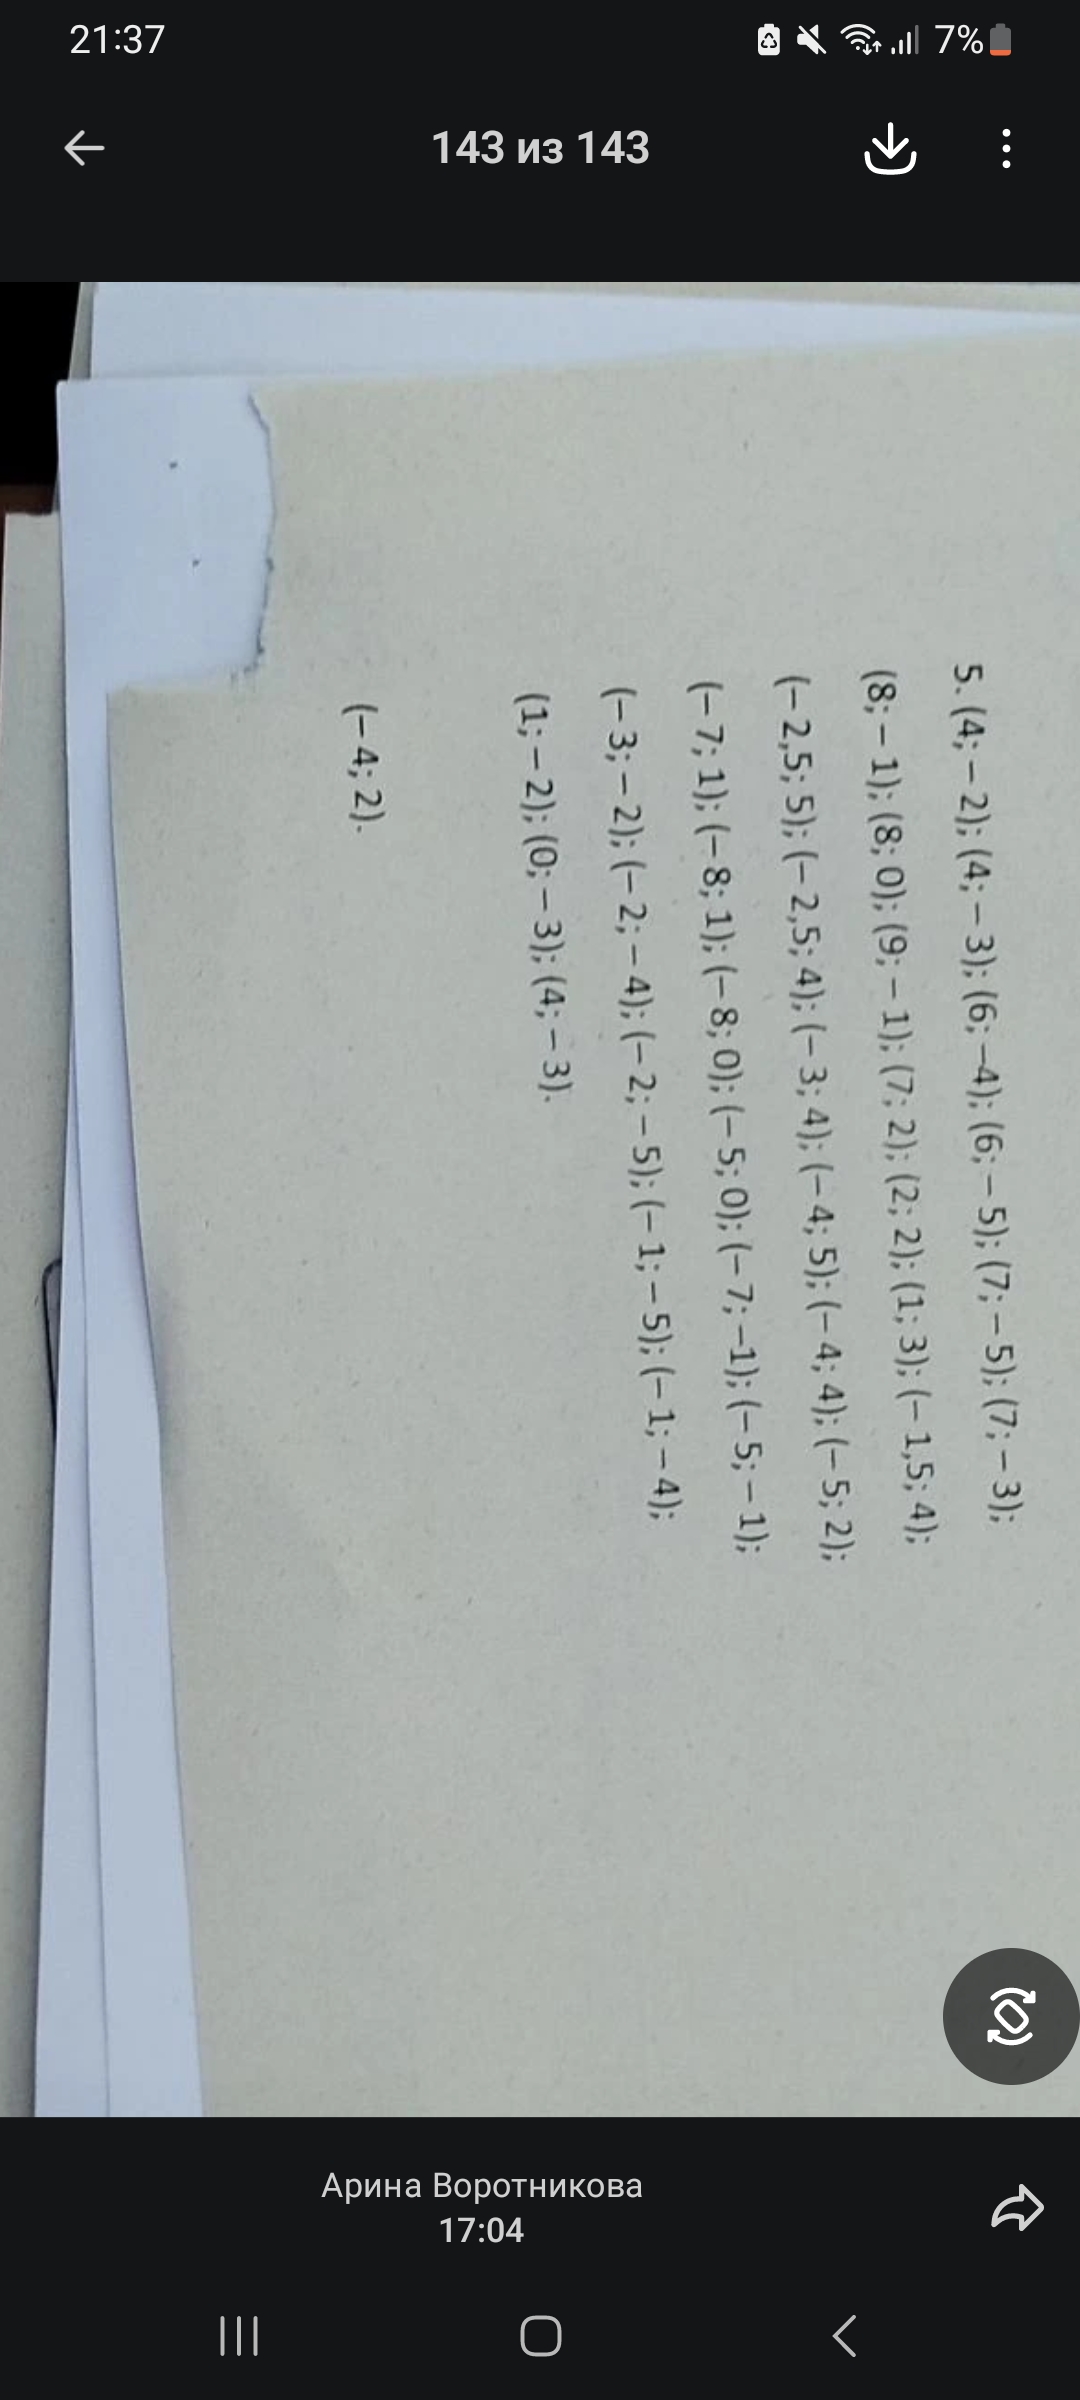 21:37
7%
143 из 143
5. (4; – 2); (4; – 3); (6; –4); (6; – 5); (7; – 5); (7; – 3);
(8; – 1); (8; 0); (9; – 1); (7; 2); (2; 2); (1; 3); (– 1,5; 4);
(– 2,5; 5); (– 2,5; 4); (– 3; 4); (– 4; 5); (– 4; 4); (– 5; 2);
(– 7; 1); (– 8; 1); (– 8; 0); (– 5; 0); (– 7; –1); (– 5; – 1);
(– 3; – 2); (– 2; – 4); (– 2; – 5); (– 1; – 5); (– 1; – 4);
(1; – 2); (0; – 3); (4; – 3).
(– 4; 2).
Арина Воротникова
17:04